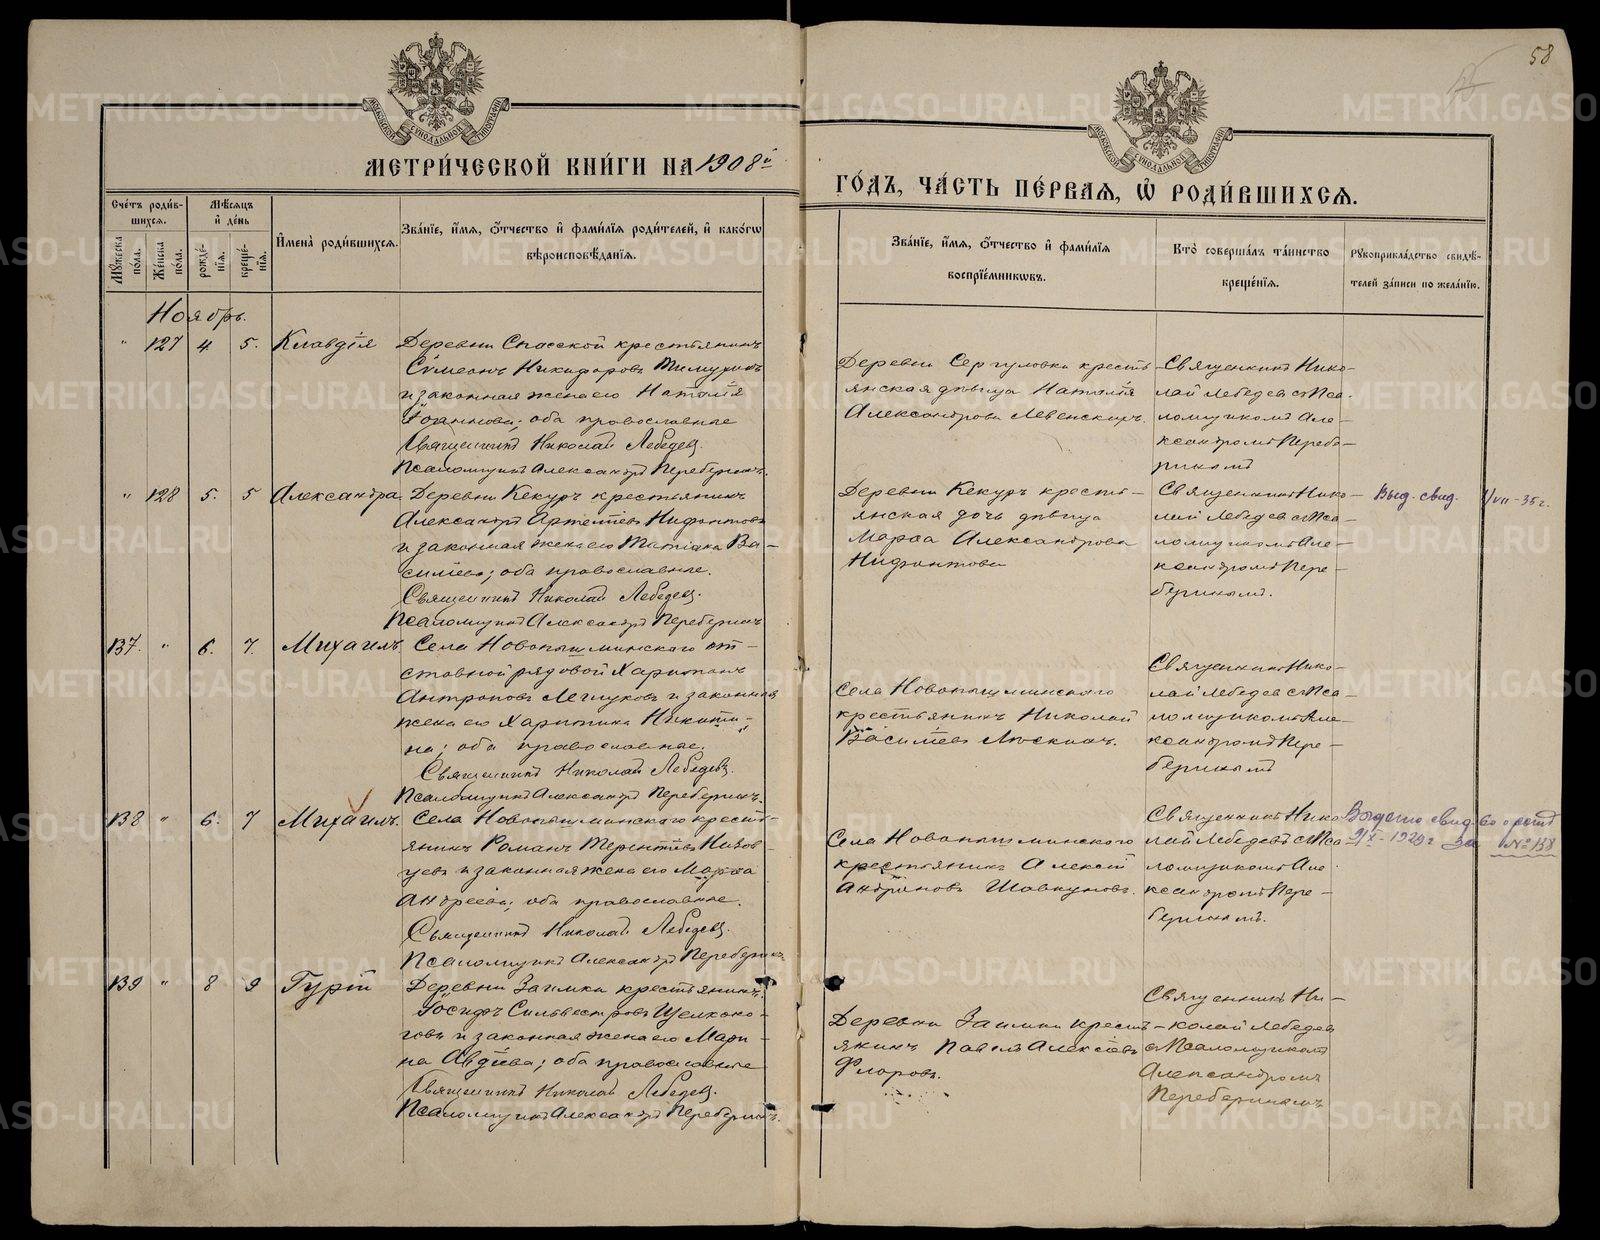 58
МЕТРИ́ЧЕСКОЙ КНИ́ГИ НА 1908й
ГО́ДЪ, ЧА́СТЬ ПЕ́РВАЯ, Ѿ РОДИ́ВШИХСЯ.
МОСКОВСКОЙ СѴНОДАЛЬНОЙ ТИПОГРАФІИ
МОСКОВСКОЙ СѴНОДАЛЬНОЙ ТИПОГРАФІИ
Сче́тъ роди́в-
шихся.
Мѣ́сяцъ
и҆ де́нь
Му́жеска по́ла.
Же́нска по́ла.
рожде́-нїя.
креще́-нїя.
И҆мена̀ роди́вшихся.
Зва́нїе, и҆́мя, ѻ҆́тчество и҆ фами́лїя роди́телей, и҆ како́гѡ
вѣроисповѣ́данїя.
Зва́нїе, и҆́мя, ѻ҆́тчество и҆ фами́лїя
воспрїе́мникѡвъ.
Кто̀ соверша́лъ та́инство
креще́нїя.
Рꙋкоприкла́дство свидѣ́-
телей за́писи по жела́нїю.
Ноябрь.
" 127 4 5. Клавдія
Деревни Спасской крестьянинъ
Сѵмеонъ Никифоровъ
и законная жена его Наталія
Іоаннова; оба православные
Священникъ Николай Лебедевъ.
Псаломщикъ Александръ Переберинъ.
Деревни Сергуловки кресть-
янская дѣвица Наталія
Александрова Левенскихъ.
Священникъ Нико-
лай Лебедев съ Пса-
ломщикомъ Але-
ксандромъ Перебе-
ринымъ
" 128 5. 5 Александра
Деревни Кекуръ крестьянинъ
Александръ Артеміевъ Нифонтовъ
и законная жена его Татіана Ва-
силіева; оба православные.
Священникъ Николай Лебедевъ.
Псаломщикъ Александръ Переберинъ
Деревни Кекуръ кресть-
янская дочь дѣвица
Марѳа Александрова
Нифонтова
Священникъ Нико-
лай Лебедев съ Пса-
ломщикомъ Але-
ксандромъ Пере-
беринымъ.
Выд. свид. 1/VII-35г.
137. " 6. 7. Михаилъ
Села Новопышминскаго от-
ставной рядовой Харитонъ
Антроповъ и законная
жена его Харитина Никити-
на; оба православные.
Священникъ Николай Лебедевъ.
Псаломщикъ Александръ Переберинъ.
Села Новопышминскаго
крестьянинъ Николай
Василіевъ
Священникъ Нико-
лай Лебедев съ Пса-
ломщикомъ Але-
ксандромъ Пере-
беринымъ
138 " 6. 7 Михаилъ.
Села Новопышминскаго кресть-
янинъ Романъ Терентіевъ Низов-
цевъ и законная жена его Марѳа
Андреева; оба православные.
Священникъ Николай Лебедевъ.
Псаломщикъ Александръ Переберинъ
Села Новопышминскаго
крестьянинъ Алексій
Андріановъ Шавкуновъ.
Священникъ Нико-
лай Лебедевъ съ Пса-
ломщикомъ Але-
ксандромъ Пере-
беринымъ.
Выдано свид-во о рожд
1929г за №138
139 " 8 9 Гурій
Деревни Заимка крестьянинъ
Іосифъ Сильвестровъ Щелконо-
говъ и законная жена его Мари-
на Авдіева; оба православные
Священникъ Николай Лебедевъ.
Псаломщикъ Александръ Переберинъ.
Деревни Заимки кресть-
янинъ Павелъ Алексіевъ
Флоровъ.
Священникъ Ни-
колай Лебедев
съ Псаломщикомъ
Александромъ
Переберинымъ
METRIKI.GASO-URAL.RU